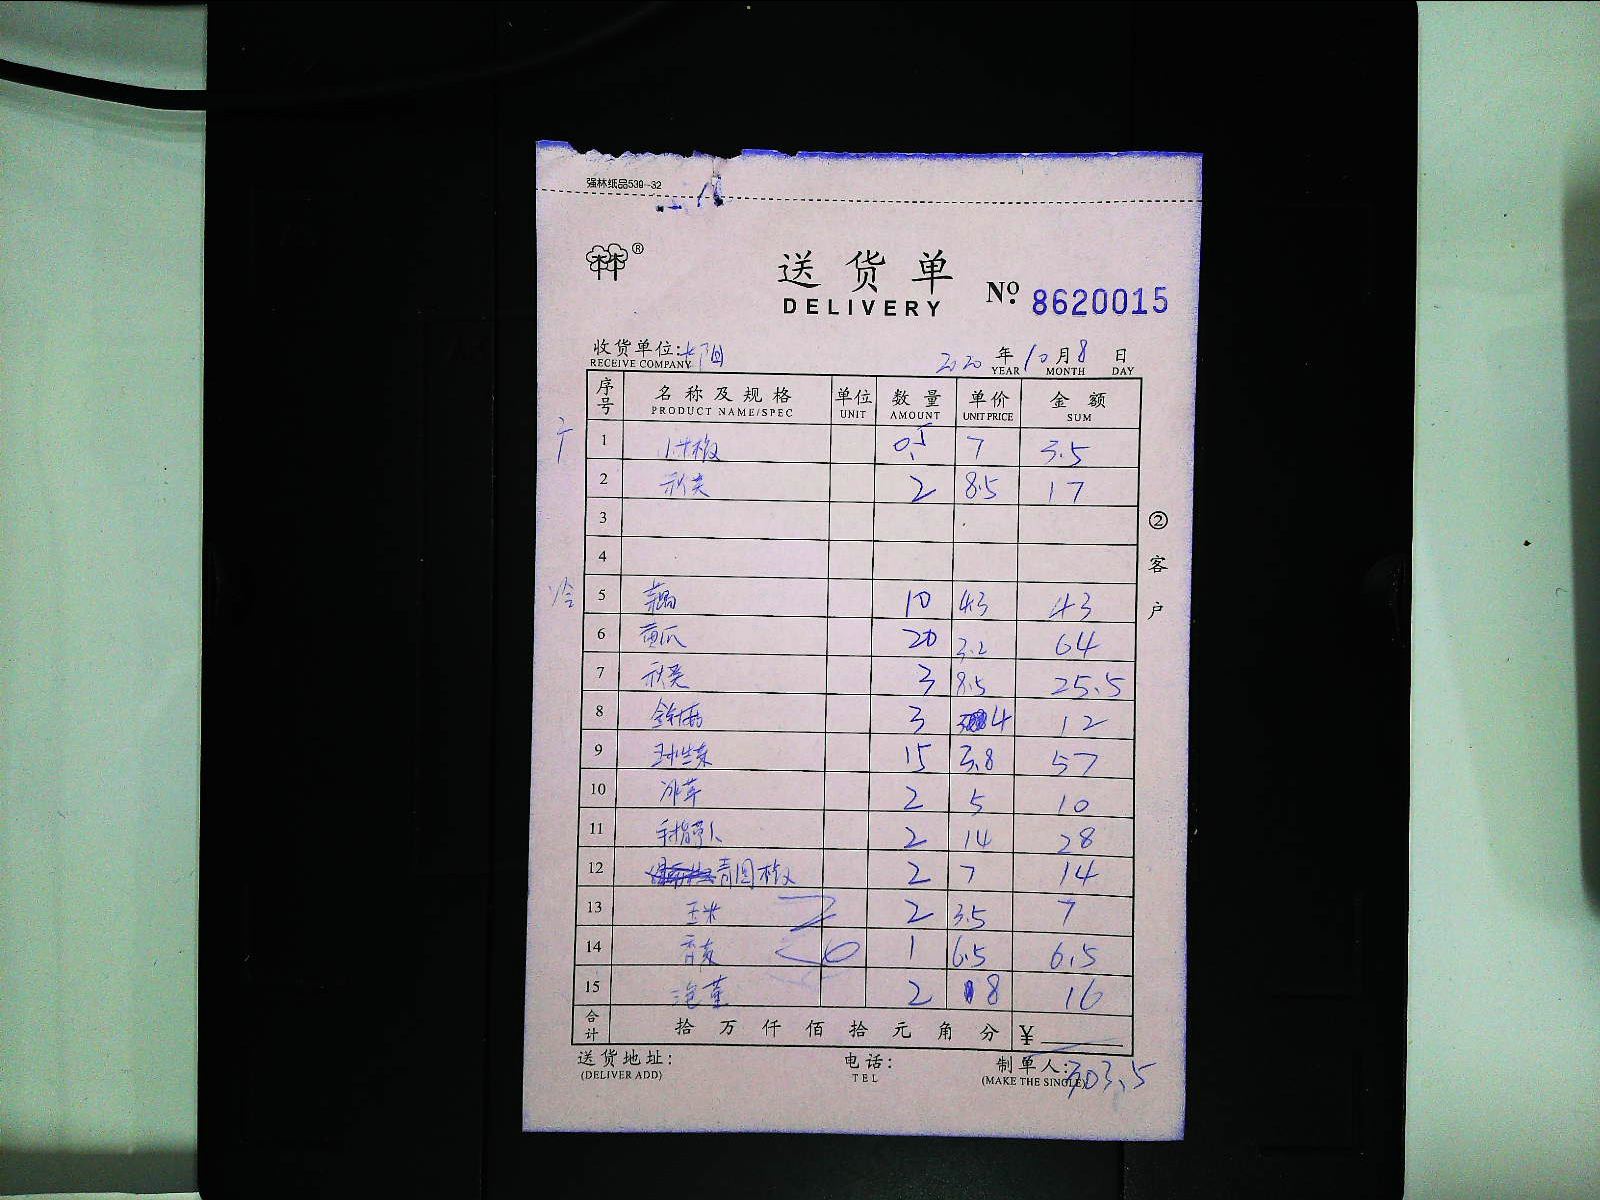 强林纸品539--32
®
送货单
DELIVERY
№ 8620015
收货单位:
RECEIVE COMPANY
2020 年 10 月 8 日
YEAR MONTH DAY
序号 名称及规格 单位 数量 单价 金额
PRODUCT NAME/SPEC UNIT AMOUNT UNIT PRICE SUM
1 小米椒 0.5 7 3.5
2 秋葵 2 8.5 17
3
4
冷 5 10 4.3 43
6 黄瓜 20 3.2 64
7 秋葵 3 8.5 25.5
8 3 4 12
9 15 3.8 57
10 冰草 2 5 10
11 手指萝卜 2 14 28
12 青圆椒 2 7 14
13 玉米 2 3.5 7
14 1 6.5 6.5
15 2 8 16
合计 拾万仟佰拾元角分 ¥
送货地址: 电话: 制单人: 303.5
(DELIVER ADD) TEL (MAKE THE SINGLE)
② 客户